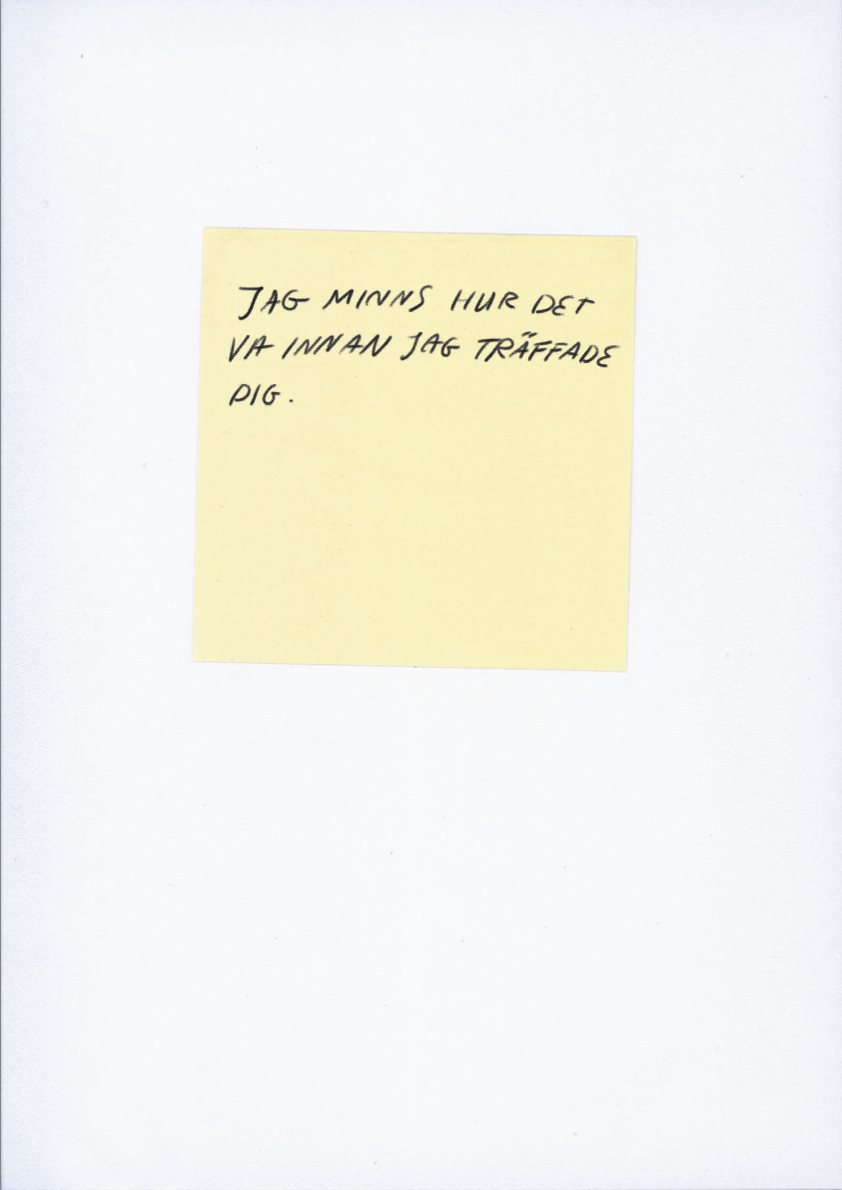 JAG MINNS HUR DET
VA INNAN JAG TRÄFFADE
DIG.